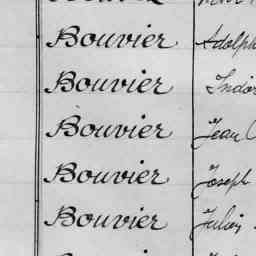 Bouvier Adolph
Bouvier Indor
Bouvier Jean
Bouvier Joseph
Bouvier Julien